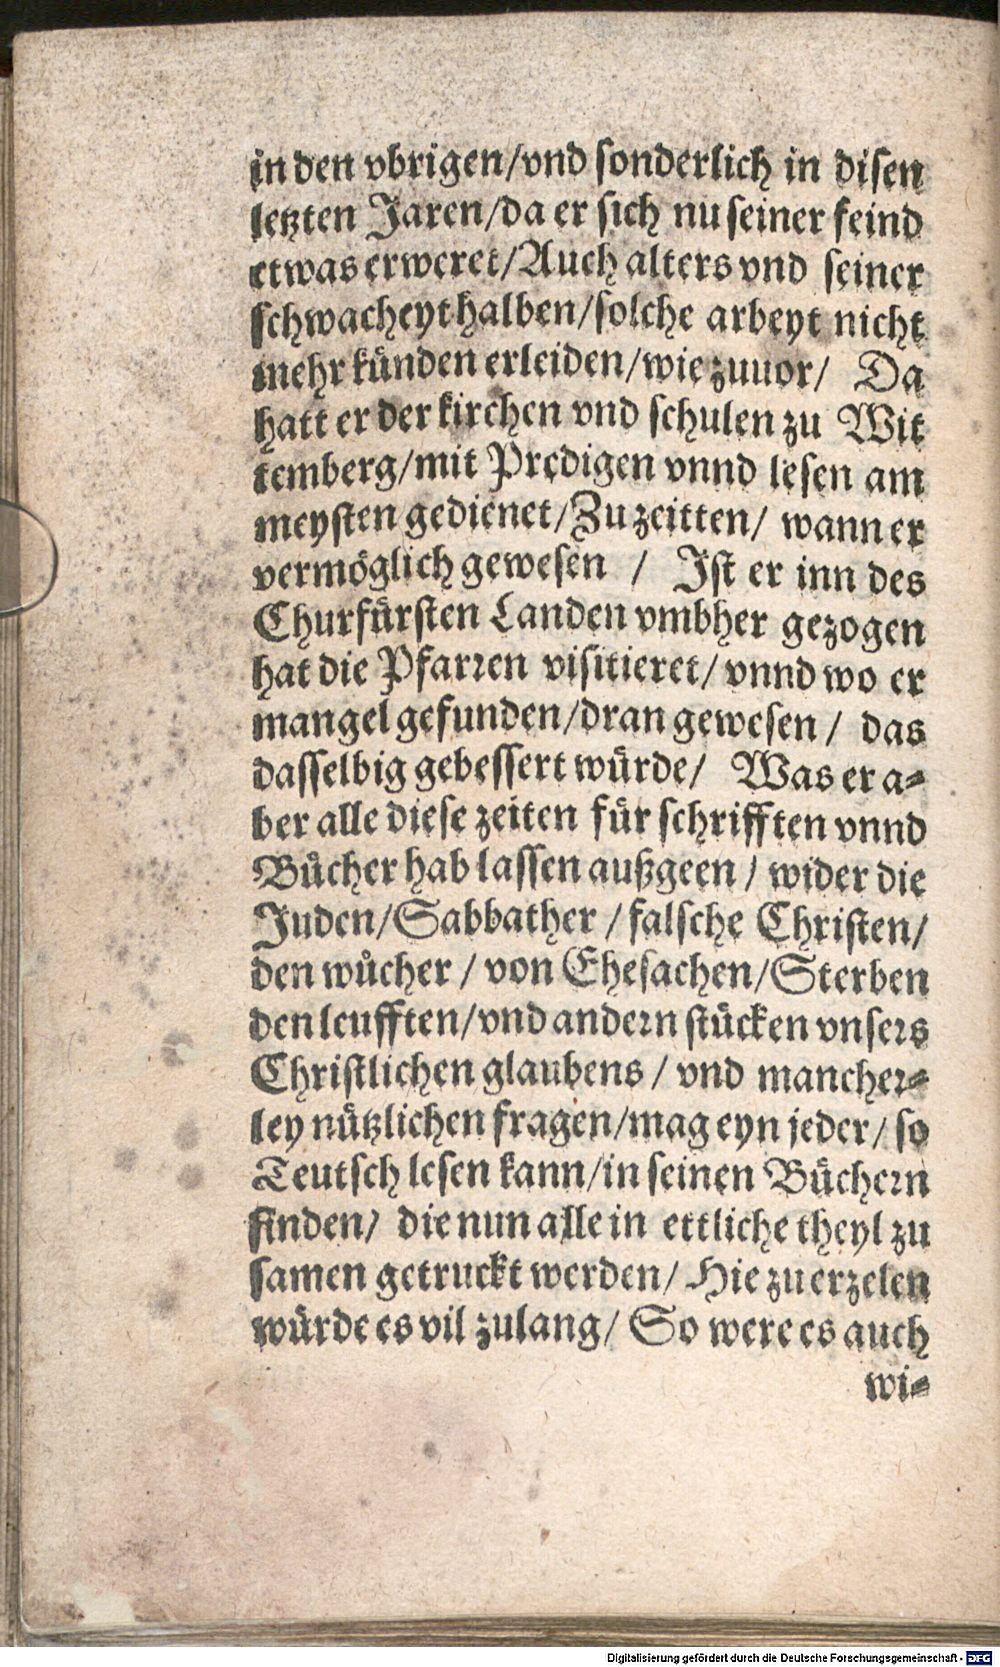 in den vbrigen/vnd sonderlich in disen
letzten Jaren/da er sich nu seiner feind
etwas erweret/Auch alters vnd seiner
schwacheyt halben/solche arbeyt nicht
mehr künden erleiden/wie zuuor/ Da
hatt er der kirchen vnd schulen zu Wit
temberg/mit Predigen vnnd lesen am
meysten gedienet/Zu zeitten/ wann er
vermöglich gewesen / Ist er inn des
Churfürsten Landen vmbher gezogen
hat die Pfarren visitieret/ vnnd wo er
mangel gefunden/dran gewesen / das
dasselbig gebessert würde/ Was er a-
ber alle diese zeiten für schrifften vnnd
Bücher hab lassen außgeen / wider die
Juden/Sabbather / falsche Christen/
den wůcher / von Ehesachen/Sterben
den leufften/vnd andern stücken vnsers
Christlichen glaubens / vnd mancher-
ley nützlichen fragen/mag eyn jeder/ so
Teutsch lesen kann/in seinen Büchern
finden/ die nun alle in ettliche theyl zu
samen getruckt werden/ Hie zu erzelen
würde es vil zulang/ So were es auch
wi-
Digitalisierung gefördert durch die Deutsche Forschungsgemeinschaft - DFG